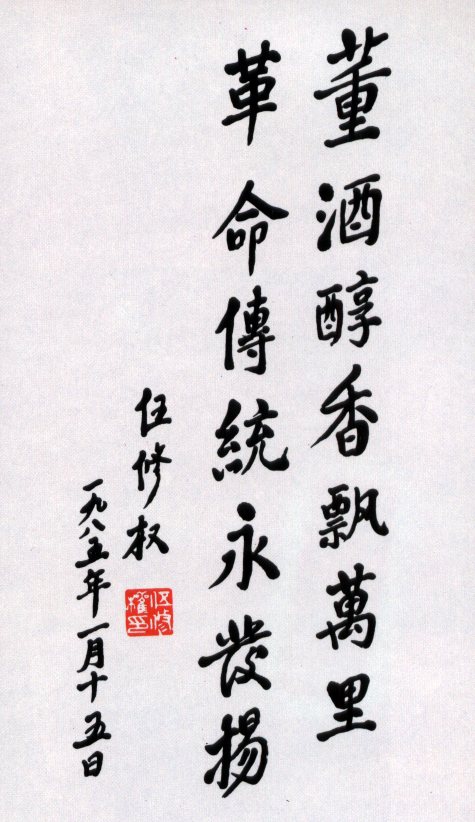 董酒醇香飘萬里
革命傳統永发揚
伍修权
一九八五年一月十五日
伍修權印